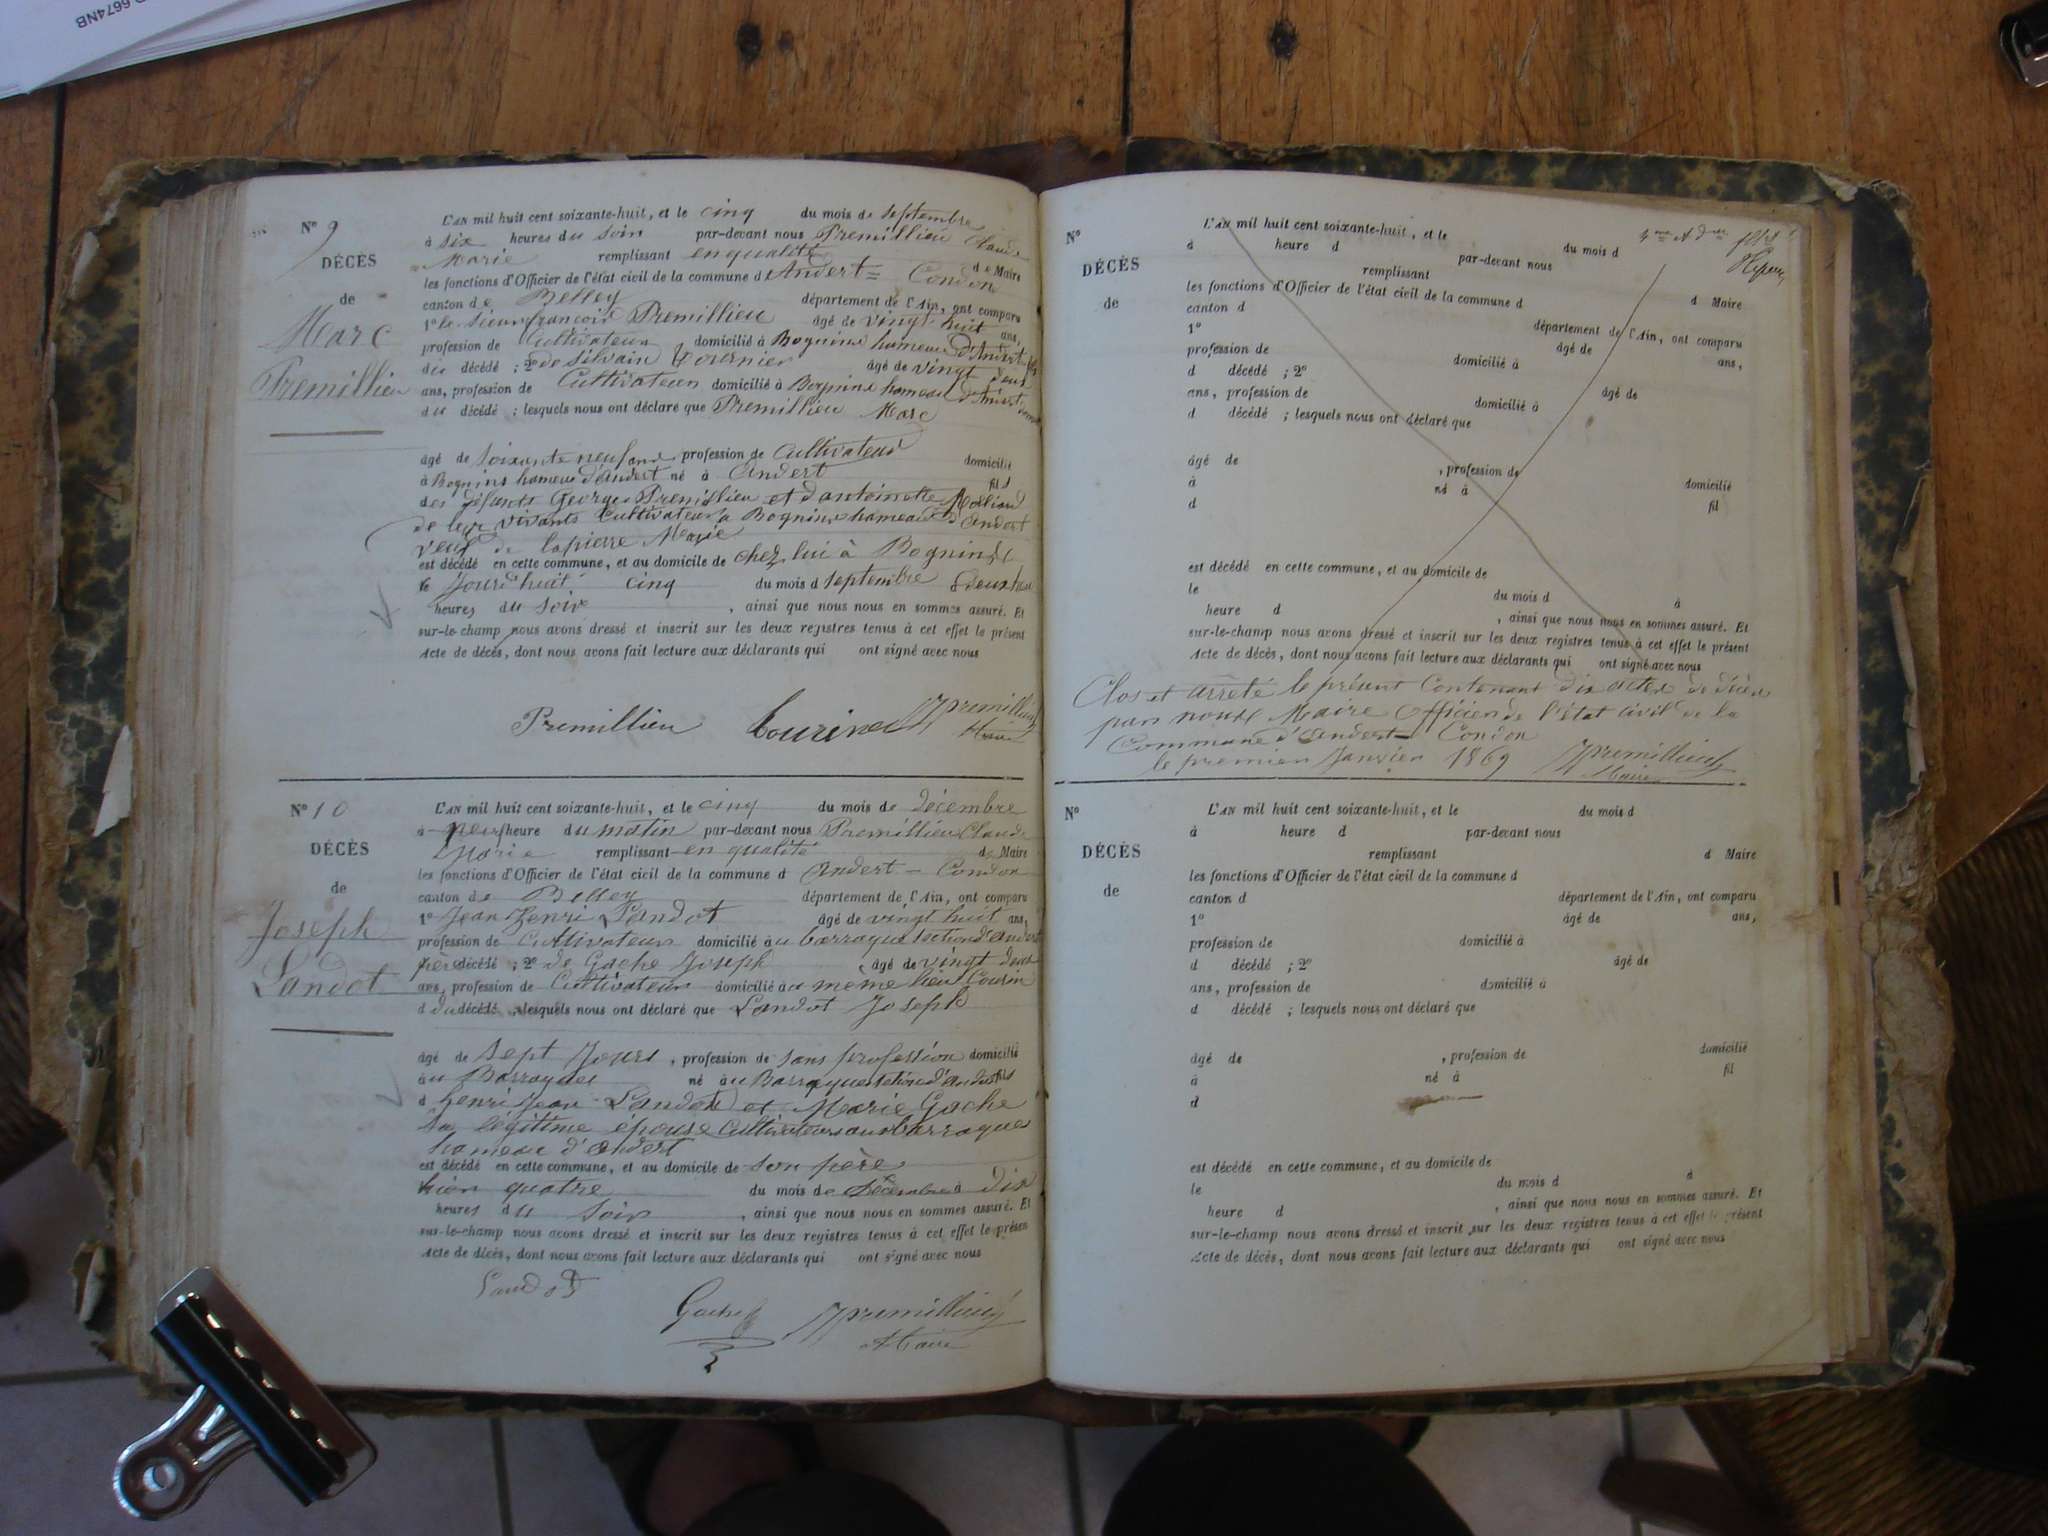 6674NB
N° 9
DÉCÈS
de
Marc
Premillieu
L'AN mil huit cent soixante-huit, et le cinq du mois de septembre
à six heures du soir par-devant nous Premillieu Claude
Marie remplissant en qualité de Maire
les fonctions d'Officier de l'état civil de la commune d'Andert = Condon
canton de Belley département de l'Ain, ont comparu
1° le sieur françois Premillieu âgé de vingt huit ans,
profession de Cultivateur domicilié à Bognins hameau d'Andert
du décédé ; 2° de Silvain âgé de vingt deux
ans, profession de Cultivateur domicilié à Bognins hameau d'Andert
du décédé ; lesquels nous ont déclaré que Premillieu Marc
âgé de soixante neuf ans profession de Cultivateur domicilié
à Bognins hameau d'Andert né à Andert fil
des défunts George Premillieu et d'antoinette
de leur vivants Cultivateurs à Bognins hameau d'Andert
veuf de lapierre Marie
est décédé en cette commune, et au domicile de chez lui à Bognins
le Jourd'huit cinq du mois d septembre à deux
heures du soir , ainsi que nous nous en sommes assuré. Et
sur-le-champ nous avons dressé et inscrit sur les deux registres tenus à cet effet le présent
Acte de décès, dont nous avons fait lecture aux déclarants qui ont signé avec nous
Premillieu Premillieu
Maire
N° 10
DÉCÈS
de
Joseph
Landot
L'AN mil huit cent soixante-huit, et le cinq du mois de décembre
à neuf heure du matin par-devant nous Premillieu Claude
Marie remplissant en qualité de Maire
les fonctions d'Officier de l'état civil de la commune d Andert - Condon
canton de Belley département de l'Ain, ont comparu
1° Jean henri Landot âgé de vingt huit ans,
profession de Cultivateur domicilié au barraque section d'Andert
père décédé ; 2° de Gache Joseph âgé de vingt deux
ans, profession de Cultivateur domicilié au même lieu Cousin
d du décédé ; lesquels nous ont déclaré que Landot Joseph
âgé de sept Jours , profession de sans profession domicilié
au Barraques né au Barraque section d'Andert fils
d henri Jean Landot et Marie Gache
Sa légitime épouse Cultivateurs aux barraques
hameau d'Andert
est décédé en cette commune, et au domicile de son père
hier quatre du mois de Décembre à dix
heures du soir , ainsi que nous nous en sommes assuré. Et
sur-le-champ nous avons dressé et inscrit sur les deux registres tenus à cet effet le présen
Acte de décès, dont nous avons fait lecture aux déclarants qui ont signé avec nous
Landot
Gache Premillieu
Maire
N°
DÉCÈS
de
L'AN mil huit cent soixante-huit, et le du mois d
à heure d par-devant nous
remplissant d Maire
les fonctions d'Officier de l'état civil de la commune d
canton d département de l'Ain, ont comparu
1° âgé de ans,
profession de domicilié à
d décédé ; 2° âgé de
ans, profession de domicilié à
d décédé ; lesquels nous ont déclaré que
âgé de , profession de domicilié
à né à fil
d
est décédé en cette commune, et au domicile de
le du mois d à
heure d , ainsi que nous nous en sommes assuré. Et
sur-le-champ nous avons dressé et inscrit sur les deux registres tenus à cet effet le présent
Acte de décès, dont nous avons fait lecture aux déclarants qui ont signé avec nous
Clos et arrêté le présent Contenant dix actes de décès
par nous Maire Officier de l'état civil de la
Commune d'Andert Condon
le premier Janvier 1869 Premillieu
Maire
N°
DÉCÈS
de
L'AN mil huit cent soixante-huit, et le du mois d
à heure d par-devant nous
remplissant d Maire
les fonctions d'Officier de l'état civil de la commune d
canton d département de l'Ain, ont comparu
1° âgé de ans,
profession de domicilié à
d décédé ; 2° âgé de
ans, profession de domicilié à
d décédé ; lesquels nous ont déclaré que
âgé de , profession de domicilié
à né à fil
d
est décédé en cette commune, et au domicile de
le du mois d à
heure d , ainsi que nous nous en sommes assuré. Et
sur-le-champ nous avons dressé et inscrit sur les deux registres tenus à cet effet le présent
Acte de décès, dont nous avons fait lecture aux déclarants qui ont signé avec nous